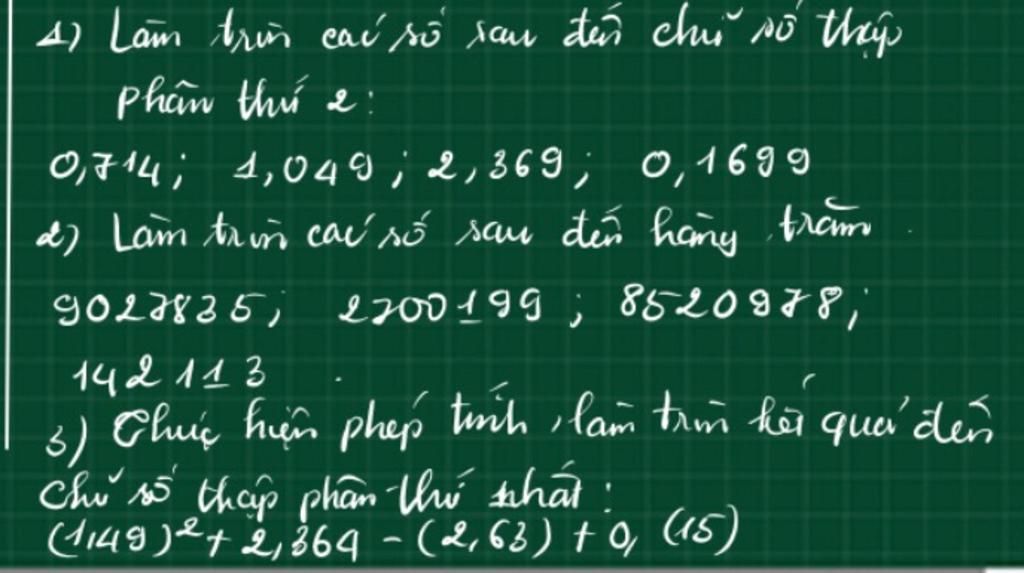 1) Làm tròn các số sau đến chữ số thập
phân thứ 2:
0,714; 1,049; 2,369; 0,1699
2) Làm tròn các số sau đến hàng trăm
9027835; 2700199; 8520978;
142113
3) Thực hiện phép tính, làm tròn kết quả đến
chữ số thập phân thứ nhất:
(1,49)² + 2,369 - (2,63) + 0,(15)